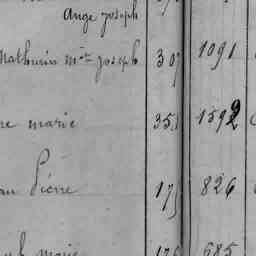 Ange joseph
Mathurin Mie joseph 307 1091
re marie 353 1592
an Pierre 175 826
marie 176 685